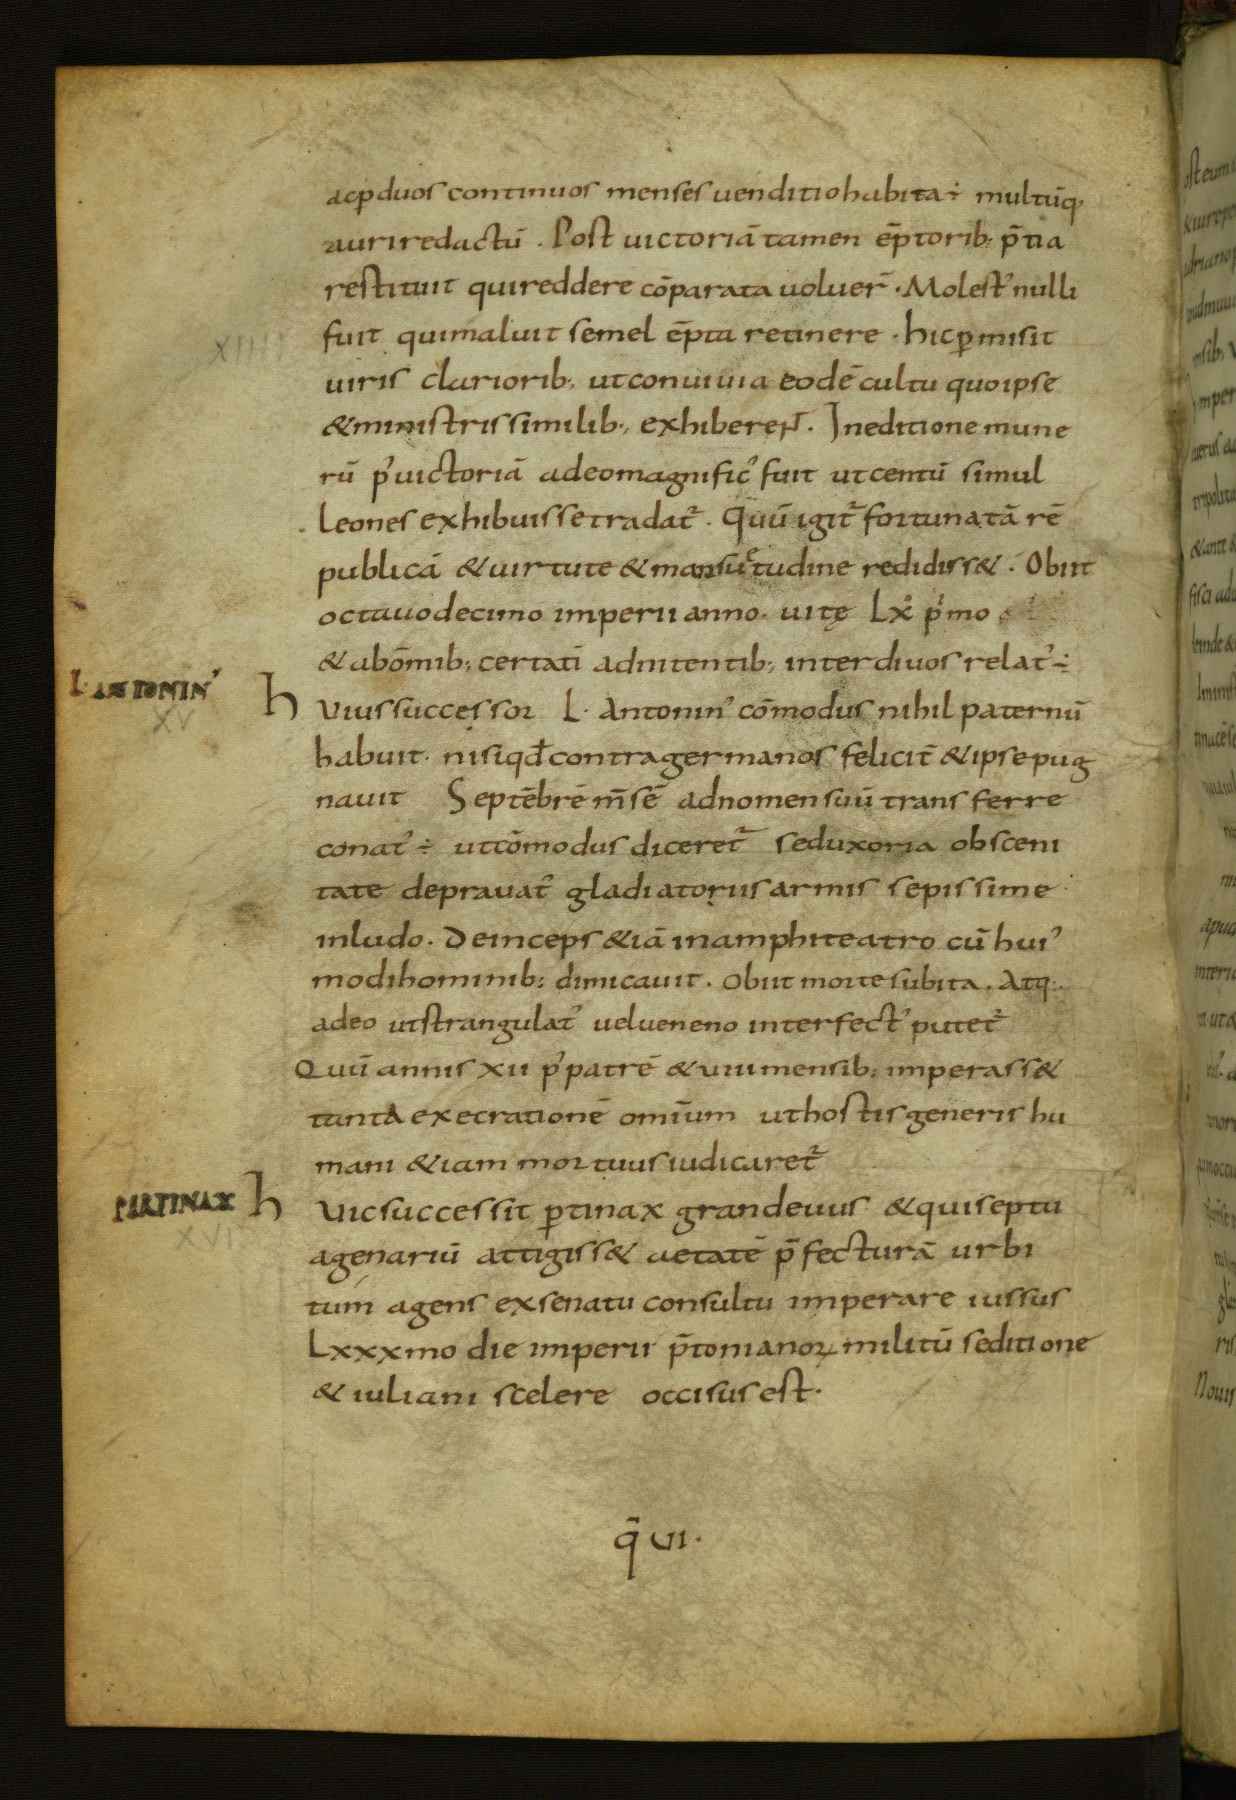 acꝑduos continuos menses uenditiohabita÷ multūq;
auriredactū . Post uictoriā tamen ēptorib; p̄tia
restituit quireddere cōparata uoluer̄ . Molestꝰ nulli
fuit quimaluit semel ēpta retinere . hicꝑmisit
uiris clariorib; utconuiuia eodē cultu quoipse
&ministrissimilib; exhiberent . Ineditione mune
rū pꝰuictoriā adeomagnificꝰ fuit utcentū simul
leones exhibuissetradat᷒ . Quū igit᷒ fortunatā rē
publicā &uirtute &mansuetudine redidiss& . Obiit
octauodecimo imperii anno . uitę Lxͦ pͥmo
&abōmib; certatī adnitentib; interdiuos relatꝰ÷
L ANTONINꝰ
XV
hUiussuccessor L. Antoninꝰ cōmodus nihil paternū
habuit . nisiqđcontragermanos felicit̄ &ipsepug
nauit Septēbrē m̄sē adnomen suū trans ferre
conatꝰ÷ utcōmodus diceret᷒ seduxoria obsceni
tate deprauatꝰ gladiatoriis armis sepissime
inludo . Deinceps &iā inamphiteatro cū huiꝰ
modihominib; dimicauit . Obiit morte subita . Atq;
adeo utstrangulatꝰ uelueneno interfectꝰ putet᷒
Quū annis xii pꝰpatrē &uiiimensib; imperass&
tanta execrationē omīum uthostis generis hu
mani &iam mortuus iudicaret᷒
PERTINAX
XVI
hUicsuccessit ꝑtinax grandeuus &quiseptu
agenariū attigiss& aetatē p̄fecturā urbi
tum agens exsenatu consultu imperare iussus
Lxxxmo die imperii p̄tonianoꝝ militū seditione
&iuliani scelere occisus est .
q̄ VI .